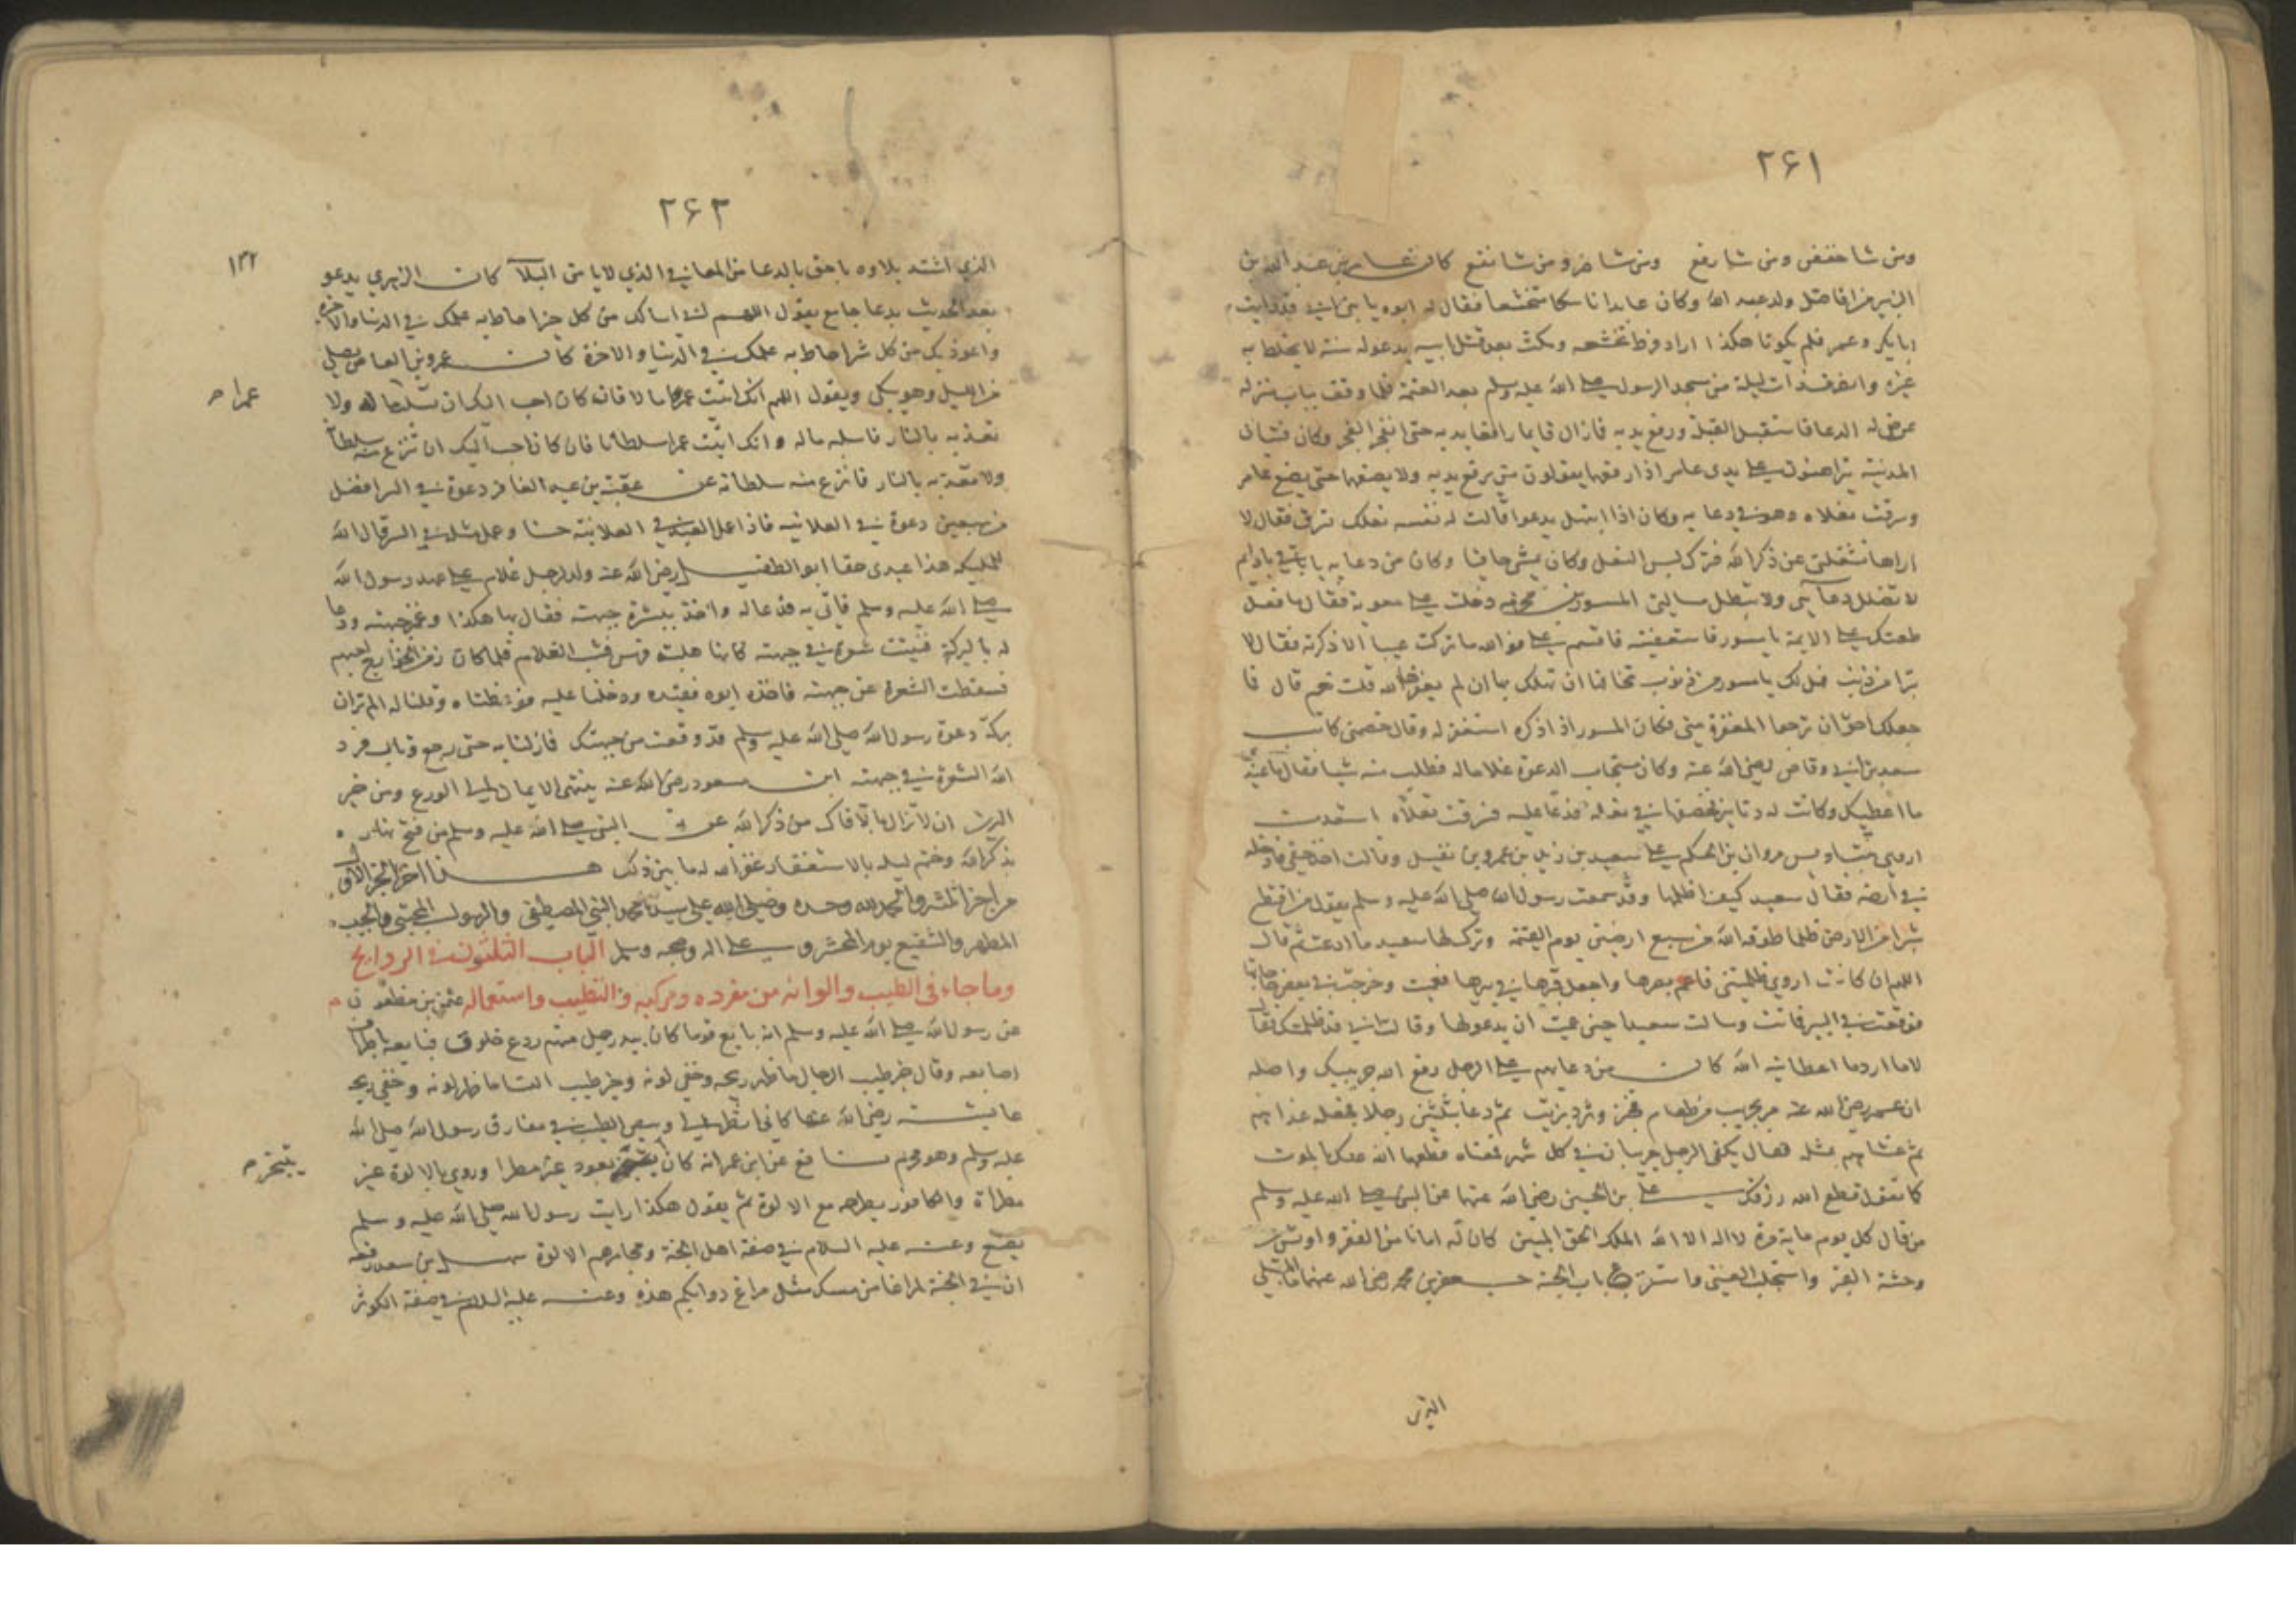 ٢۶١
ومن شا خفض ومن شا رفع ومن شا ضر ومن شا نفع كان عامر بن عبد الله بن
الزبير من افاضل ولد عبد الله وكان عابدا ناسكا متخشعا فقال له ابوه يا بني اني قد رايت
ابا بكر وعمر فلم يكونا هكذا اراد فرط تخشعه ومكث بعد قتل ابيه يدعو له سنة لا يخلط به
غيره وانصرف ذات ليلة من مسجد الرسول صلى الله عليه وسلم بعد العتمة فلما وقف بباب منزله
عرض له الدعا فاستقبل القبلة ورفع يديه فما زال قايما رافعا يديه حتى انفجر الفجر وكان فتيان
المدينة يتراهنون على يدي عامر اذا رفعها يقولون متى يرفع يديه ولا يضعها حتى يضع عامر
وسرقت نعلاه وهو في دعايه وكان اذا ابتهل يدعوا قالت له نفسه نعلك تسرق فقال لا
اراها تشغلني عن ذكر الله فترك لبس النعل وكان يمشي حافيا وكان من دعايه يا باقي يا دايم
لا تضلل دعاي ولا تبطل مسالتي المسور بن مخرمة دخلت على معوية فقال ما فعل
طعنك على الايمة يا مسور فاستعفيته فاقسم علي فوالله ما تركت عيبا الا ذكرته فقال لا
تبرا من ذنب فهل لك يا مسور من ذنوب تخافها ان تهلك بها ان لم يغفرها الله قلت نعم قال فما
جعلك احق ان ترجوا المغفرة مني فكان المسور اذا ذكره استغفر له وقال خصمني كانت
سعد بن ابي وقاص رضي الله عنه وكان مستجاب الدعوة غلاما له فطلب منه شيا فقال ما عندي
ما اعطيك وكانت له دنانير فخصفها في نعله فدعا عليه فسرقت نعلاه استعدت
اروى بنت اويس مروان بن الحكم على سعيد بن زيد بن عمرو بن نفيل وقالت اخذ حقي فادخله
في ارضه فقال سعيد كيف اظلمها وقد سمعت رسول الله صلى الله عليه وسلم يقول من اقتطع
شبرا من الارض ظلما طوقه الله من سبع ارضين يوم القيمة وترك لها سعيد ما ادعت ثم قال
اللهم ان كانت اروى ظلمتني فاعم بصرها واجعل قبرها في بيرها فعميت وخرجت في بعض حاجاتها
فوقعت في البير فماتت وسالت سعيدا حين عميت ان يدعو لها وقالت اني قد ظلمتك فقال
لا ما ارد ما اعطانيه الله كان من دعايهم على الرجل رفع الله جريبك واصله
ان عمر رضي الله عنه مر بجريب من طعام فخبز وثرد بزيت ثم دعا بثلثين رجلا فجعله غداهم
ثم عشاهم بمثله فقال يكفي الرجل جريبان في كل شهر فمعناه قطعها الله عنك بالموت
كما تقول قطع الله رزقك علي بن الحسين رضي الله عنهما عن النبي صلى الله عليه وسلم
من قال كل يوم ماية مرة لا اله الا الله الملك الحق المبين كان له امانا من الفقر واونس من
وحشة القبر واستجلب الغنى واستقرع باب الجنة جعفر بن محمد رضي الله عنهما ما المبتلي
الذي
٢۶٢
١٣٢
الذي اشتد بلاوه باحق بالدعا من المعافي الذي لا يامن البلا كان الزهري يدعو
بعد الحديث بدعا جامع يقول اللهم اني اسالك من كل خير احاط به علمك في الدنيا والاخرة
واعوذ بك من كل شر احاط به علمك في الدنيا والاخرة كان عمرو بن العاص يصلي
من الليل وهو يبكي ويقول اللهم انك اتيت عمرا مالا فان كان احب اليك ان تسلبه ماله ولا
عمرا صح
تعذبه بالنار فاسلبه ماله وانك اتيت عمرا سلطانا فان كان احب اليك ان تنزع منه سلطانه
ولا تعذبه بالنار فانزع منه سلطانه عن عقبة بن عبد الغافر دعوة في السر افضل
من سبعين دعوة في العلانيه فاذا عمل العبد في العلانية حسنا وعمل مثله في السر قال الله
لملايكته هذا عبدي حقا ابو الطفيل رضي الله عنه ولد لرجل غلام على عهد رسول الله
صلى الله عليه وسلم فاتي به فدعا له واخذ ببشرة جبهته فقال بها هكذا وغمز جبهته ودعا
له بالبركة فنبتت شعرة في جبهته كانها هلبة فرس فشب الغلام فلما كان زمن الخوارج احبهم
فسقطت الشعرة عن جبهته فاخذه ابوه فقيده ودخلنا عليه فوعظناه وقلنا له الم تر ان
بركة دعوة رسول الله صلى الله عليه وسلم قد وقعت من جبهتك فما زلنا به حتى رجع وتاب فرد
الله الشعرة في جبهته ابن مسعود رضي الله عنه ينتهي الايمان الى الورع ومن خير
الدين ان لا تزال بالا فاك من ذكر الله عن النبي صلى الله عليه وسلم من فتح نهاره
بذكر الله وختم ليله بالاستغفار غفر الله له ما بين ذلك هذا اخر الجزء الاول
من اجزا المشروالحمد لله وحده وصلى الله على سيدنا محمد النبي المصطفى والرسول المجتبى والحبيب
المطهر والشفيع يوم المحشر وعلى اله وصحبه وسلم الباب الثلثون في الروايح
وما جاء في الطيب والوانه من مفرده ومركبه والتطيب واستعماله عثمن بن مظعون
عن رسول الله صلى الله عليه وسلم انه بايع قوما كان بيد رجل منهم ردع خلوق فبايعه باطراف
اصابعه وقال خير طيب الرجال ما ظهر ريحه وخفي لونه وخير طيب النسا ما ظهر لونه وخفي ريحه
عايشة رضي الله عنها كاني انظر الى وبيص الطيب في مفارق رسول الله صلى الله
عليه وسلم وهو محرم نافع عن ابن عمر انه كان يتبخر بعود غير مطرا وروي بالالوة غير
يتبخر صح
مطراة والكافور يطرحه مع الالوة ثم يقول هكذا رايت رسول الله صلى الله عليه وسلم
يصنع وعنه عليه السلام في صفة اهل الجنة ومجامرهم الالوة سهل بن سعد رفعه
ان في الجنة لمراغا من مسك مثل مراغ دوابكم هذه وعنه عليه السلام في صفة الكوثر